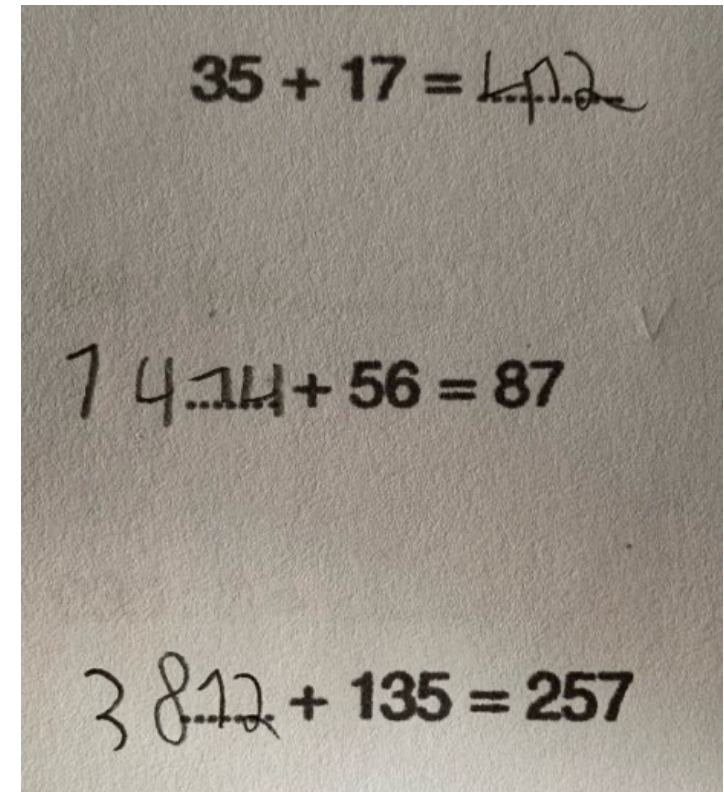 35 + 17 = 412
1414 + 56 = 87
3812 + 135 = 257